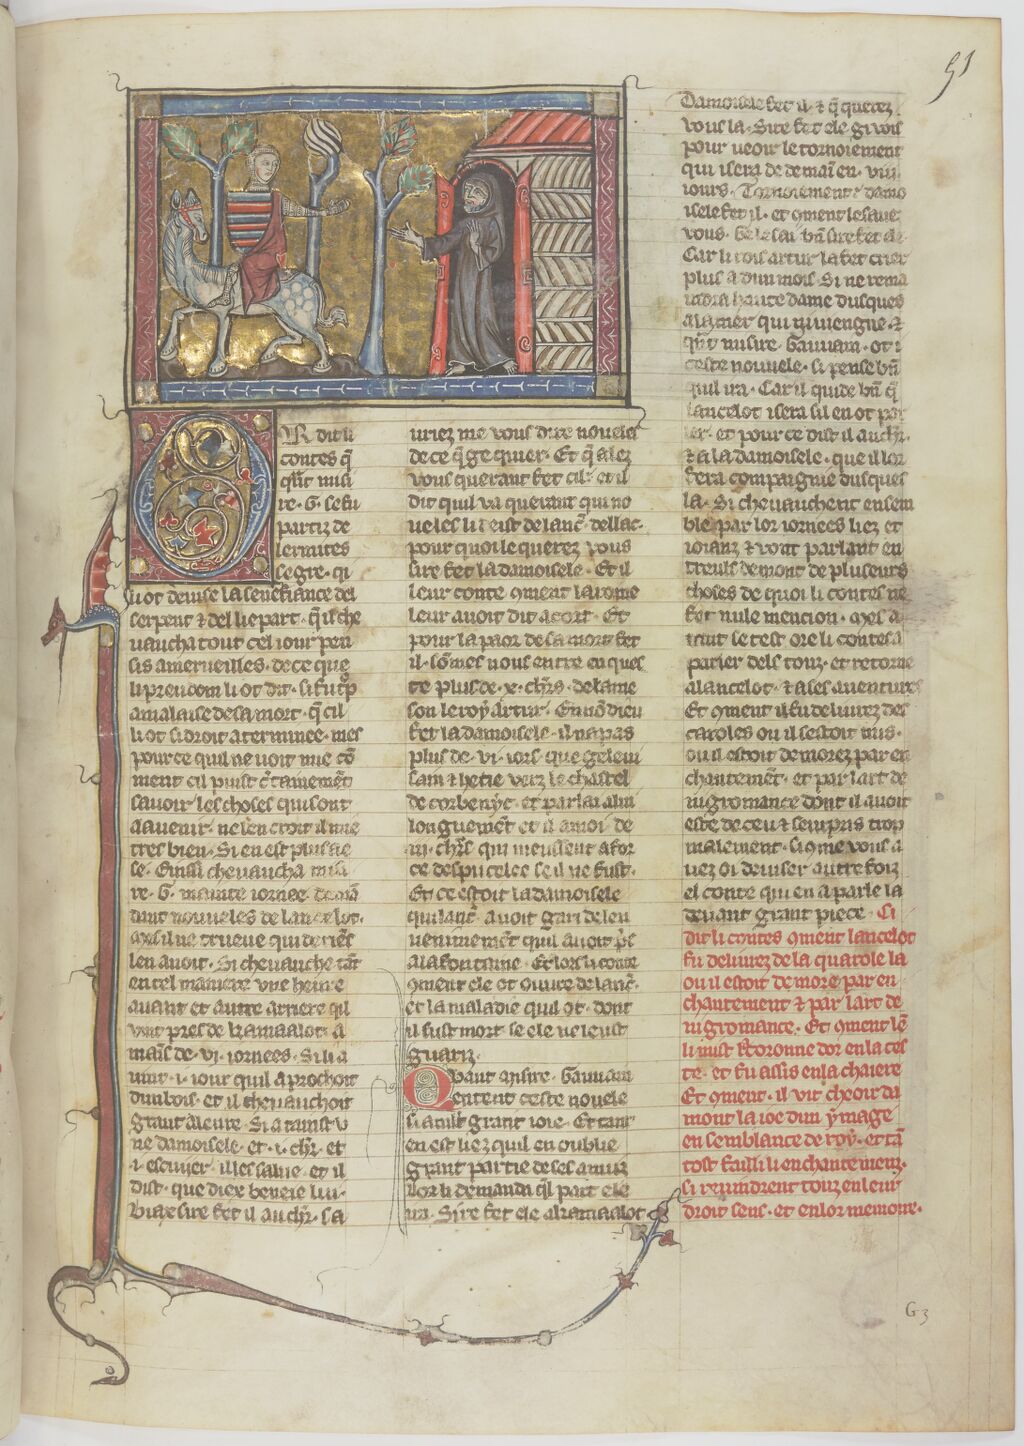 51
Or dit li
contes q̄
qñt misi
re · G · se fu
partiz de
lermites
segre · qi
li ot devise la senefiance del
serpent ⁊ del liepart · q̄ il che
vaucha tout cel iour pen
sis a merueilles · de ce que
li preudom li ot dit · si fu tp̄
a malaise de sa mort · q̄ cil
li ot si droit a terminee · mes
pour ce quil ne voit mie cō
ment cil puist c̄tainemēt
savoir les choses qui sont
a avenir · ne len croit il mie
tres bien · Si en est plus aie
se · Einsi chevaucha misi
re · G · mainte iornee · demā
dant nouueles de lancelot ·
Mes il ne trueue qui de riēs
len avoit · Si chevauche tāt
en tel maniere une heure
avant et autre arriere qil
vint pres de kamaalot · a
mais de · vi · iornees · Si li a
vint · i · iour quil aprochoit
dun bois · et il chevauchoit
grant aleure · Si atainst v
ne damoisele · et · i · chr̄ · et
· i · escuier · il les salue · et il
dist · que diex beneie lui ·
Biax sire fet il au chr̄ · sa
uriez me vous dire noueles
de ce q̄ ge quier · Et q̄ alez
vous querant fet cil · et il
dit quil va querant qui no
ueles li deist de lanc̄ · del lac ·
pour quoi le querez vous
sire fet la damoisele · Et il
leur conte 9ment la roine
leur avoit dit a cort · Et
pour la paor de sa mort fet
il · sōmes nous entre en ques
te plus de · x · chr̄s · de la me
son le roy artur · En nō dieu
fet la damoisele · il na pas
plus de · vi · iors · que ge le vi
sain ⁊ hetie verz le chastel
de corbenyc · et parlai a lui
longuemēt · et il a moi de
· chr̄s qui meussent a for
ce despucelee se il ne fust ·
Et ce estoit la damoisele
qui lanc̄ · avoit gari de leu
uenimemēt quil avoit p̄s
a la fontaine · Et lors li conte
9ment ele ot ouvre de lanc̄ ·
et la maladie quil ot · dont
il fust mort se ele ne leust
guariz ·
Quant misire · Gauuain
entent ceste novele
si a mlt̄ grant ioie · Et tant
en est liez quil en oublie
grant partie de ses anuiz
Lor li demanda q̄l part ele
va · Sire fet ele a kamaalot
Damoisele fet il · ⁊ q̄ querez
vous la · Sire fet ele gi vois
pour veoir le tornoiement
qui i sera de demaī en · viii
iours · Tornoiement · damo
isele fet il · et 9ment le savez
vous · Ge le sai bn̄ sire fet ele
Car li rois artur la fet crier
plus a dun mois · Si ne rema
indra haute dame dusques
a la mer qui ni viengne · ⁊
qñt misire · Gauuain · ot
ceste nouuele · si pense bn̄
quil ira · Car il quide bn̄ q̄
lancelot i sera sil en ot par
ler · et pour ce dist il au chr̄ ·
⁊ a la damoisele · que il lor
fera compaignie dusques
la · Si chevauchent ensem
ble par lor iornees liez et
ioianz ⁊ vont parlant en
treuls de mont de pluseurs
choses de quoi li contes ne
fet nule mencion · Mes a
tant se test ore li contes a
parler dels touz · et retorne
a lancelot · ⁊ a ses aventures
Et 9ment il fu delivrez des
caroles ou il sestoit mis ·
ou il estoit demorez par en
chantemēt · et par lart de
nigromance dont il avoit
este deceu ⁊ sempris trop
malement · si 9me vous a
vez oi deviser autre foiz
el conte qui en a parle la
devant grant piece · Ci
dit li contes 9ment lancelot
fu delivrez de la quarole la
ou il estoit demore par en
chantement ⁊ par lart de
nigromance · Et 9ment lē
li mist coronne dor en la tes
te · et fu assis en la chaiere
Et 9ment · il vit cheoir da
mont la ioe dun ymage
en semblance de roy · et tā
tost failli li enchantemenz ·
si revindrent touz en leur
droit sens · et en lor memoire ·
G 3